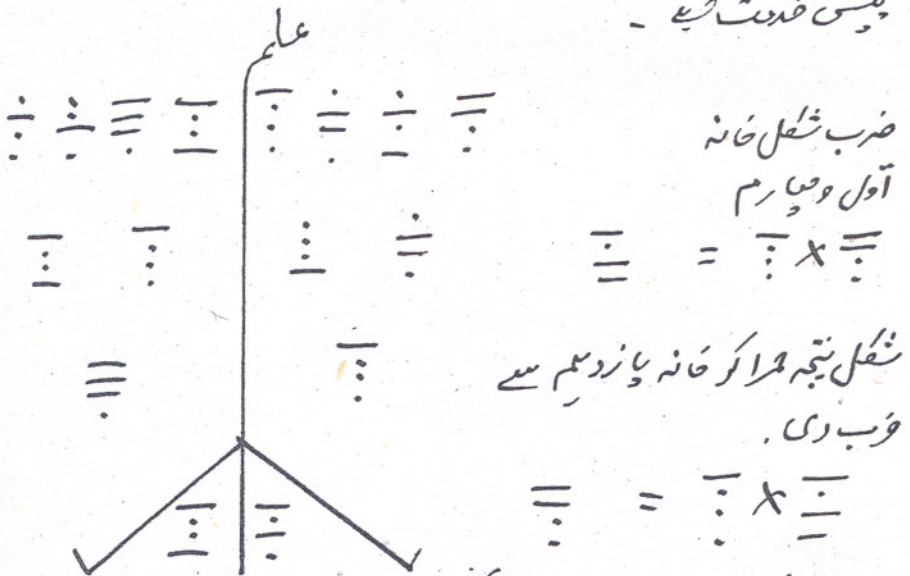 پیش خدمت ہے -
عام
ضرب شکل خانہ
اول و چہارم
× =
شکل نتیجہ کو خانہ پازدہم سے
ضرب دی.
× =